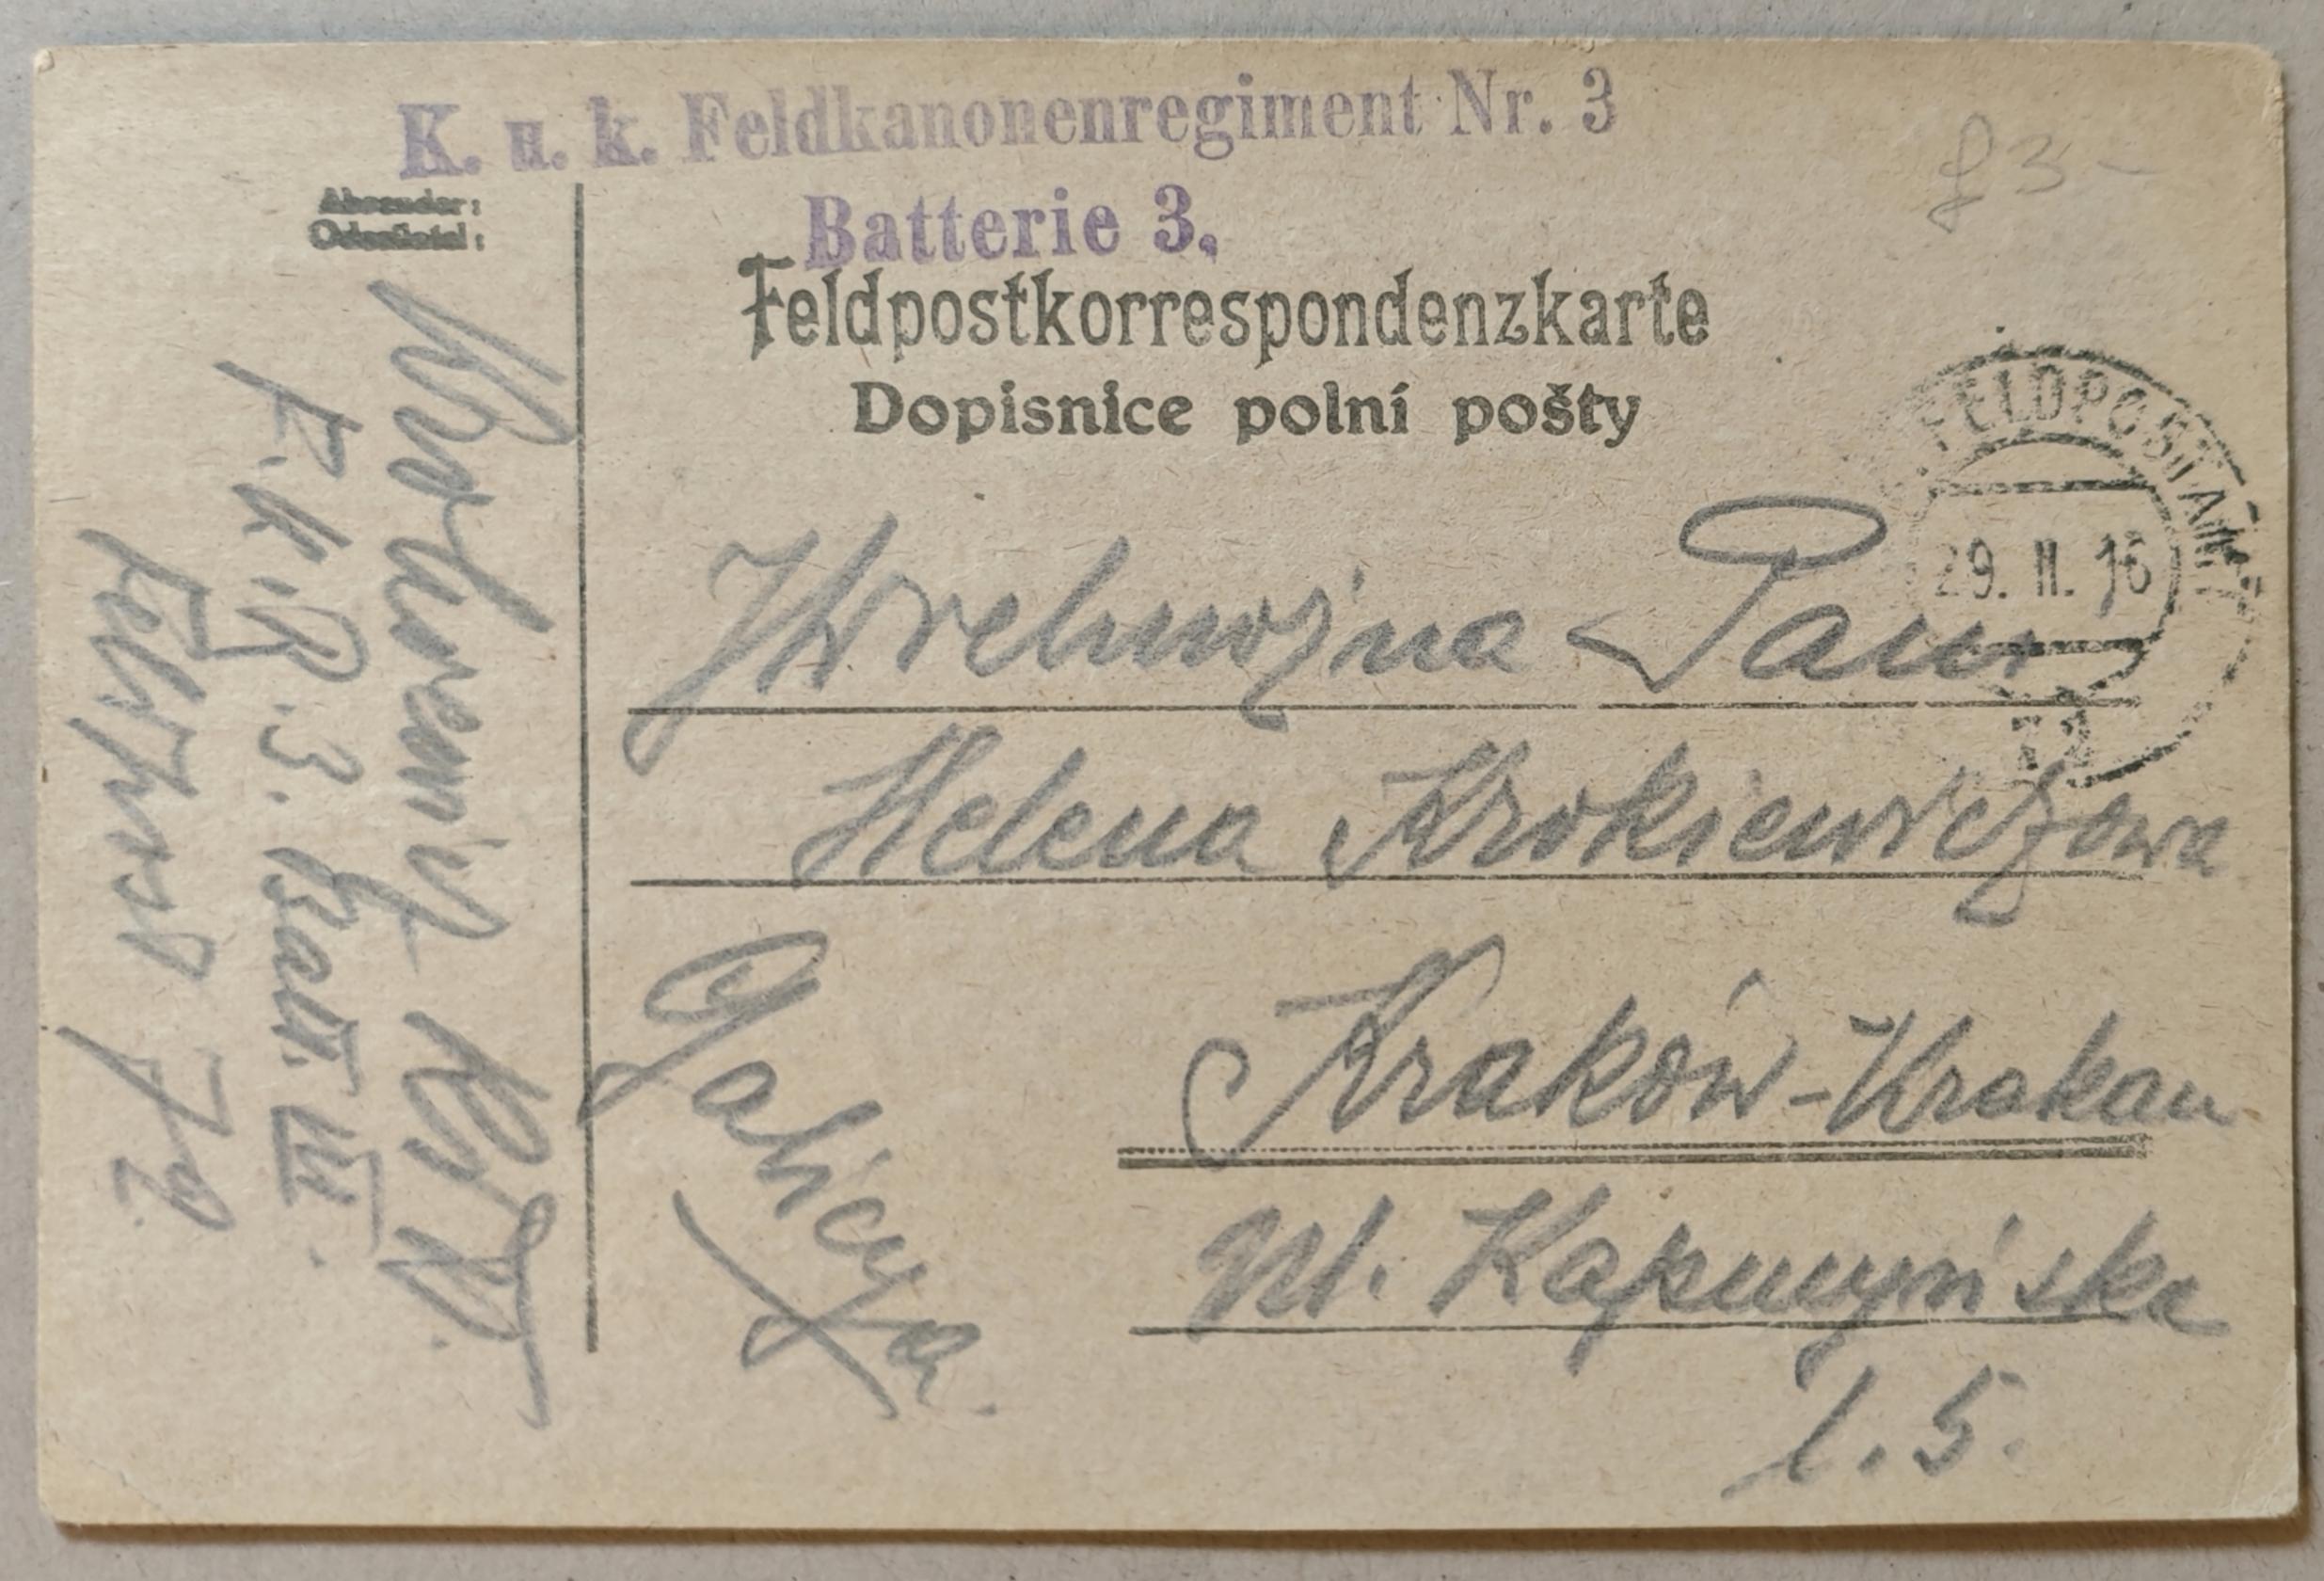 K. u. k. Feldkanonenregiment Nr. 3
Batterie 3.
Absender:
Odesílatel:
Feldpostkorrespondenzkarte
Dopisnice polní pošty
FELDPOSTAMT
29. II. 16
72
£3-
JWielmożna Pani
Helena Krokiewiczowa
Kraków-Krakau
ul.
l. 5.
Galicya.
F.K.R. 3. Batt. III.
Feldpost 72.